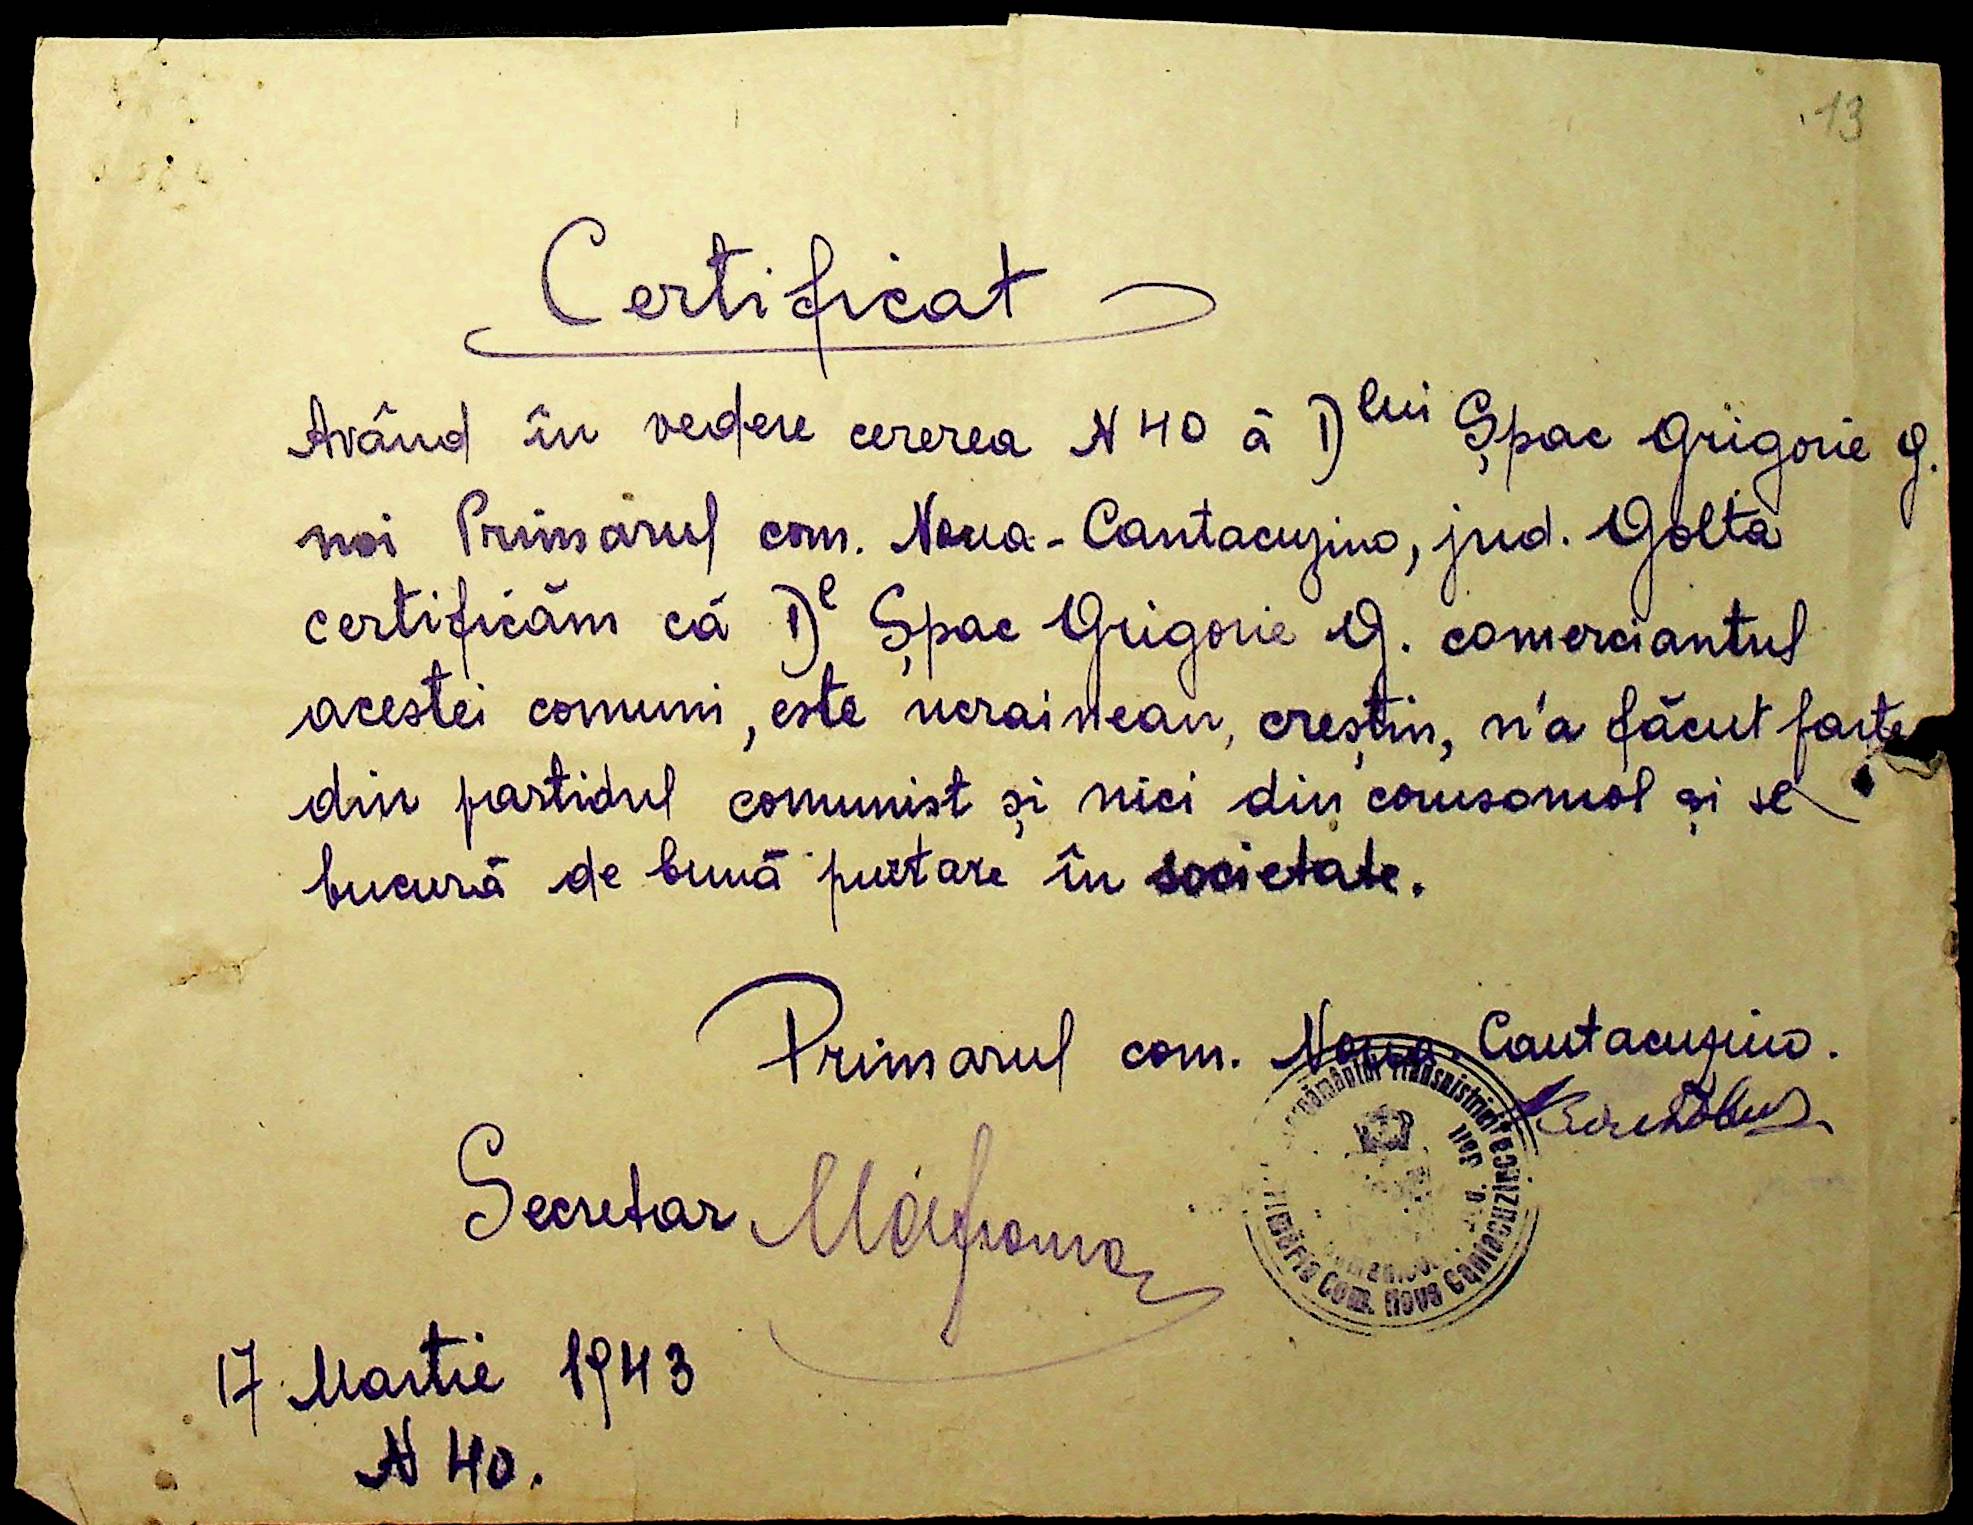 13
Certificat
Având în vedere cererea N 40 ā Dlui Șpac Grigorie G.
noi Primarul com. Noua-Cantacuzino, jud. Golta
certificăm că Dl Șpac Grigorie G. comerciantul
acestei comuni, este ucrainean, creștin, n'a făcut parte
din partidul comunist și nici din comsomol și se
bucură de bună purtare în societate.
Primarul com. Noua-Cantacuzino.
Secretar
Primăria Com. Noua Cantacuzino
17 Martie 1943
N 40.